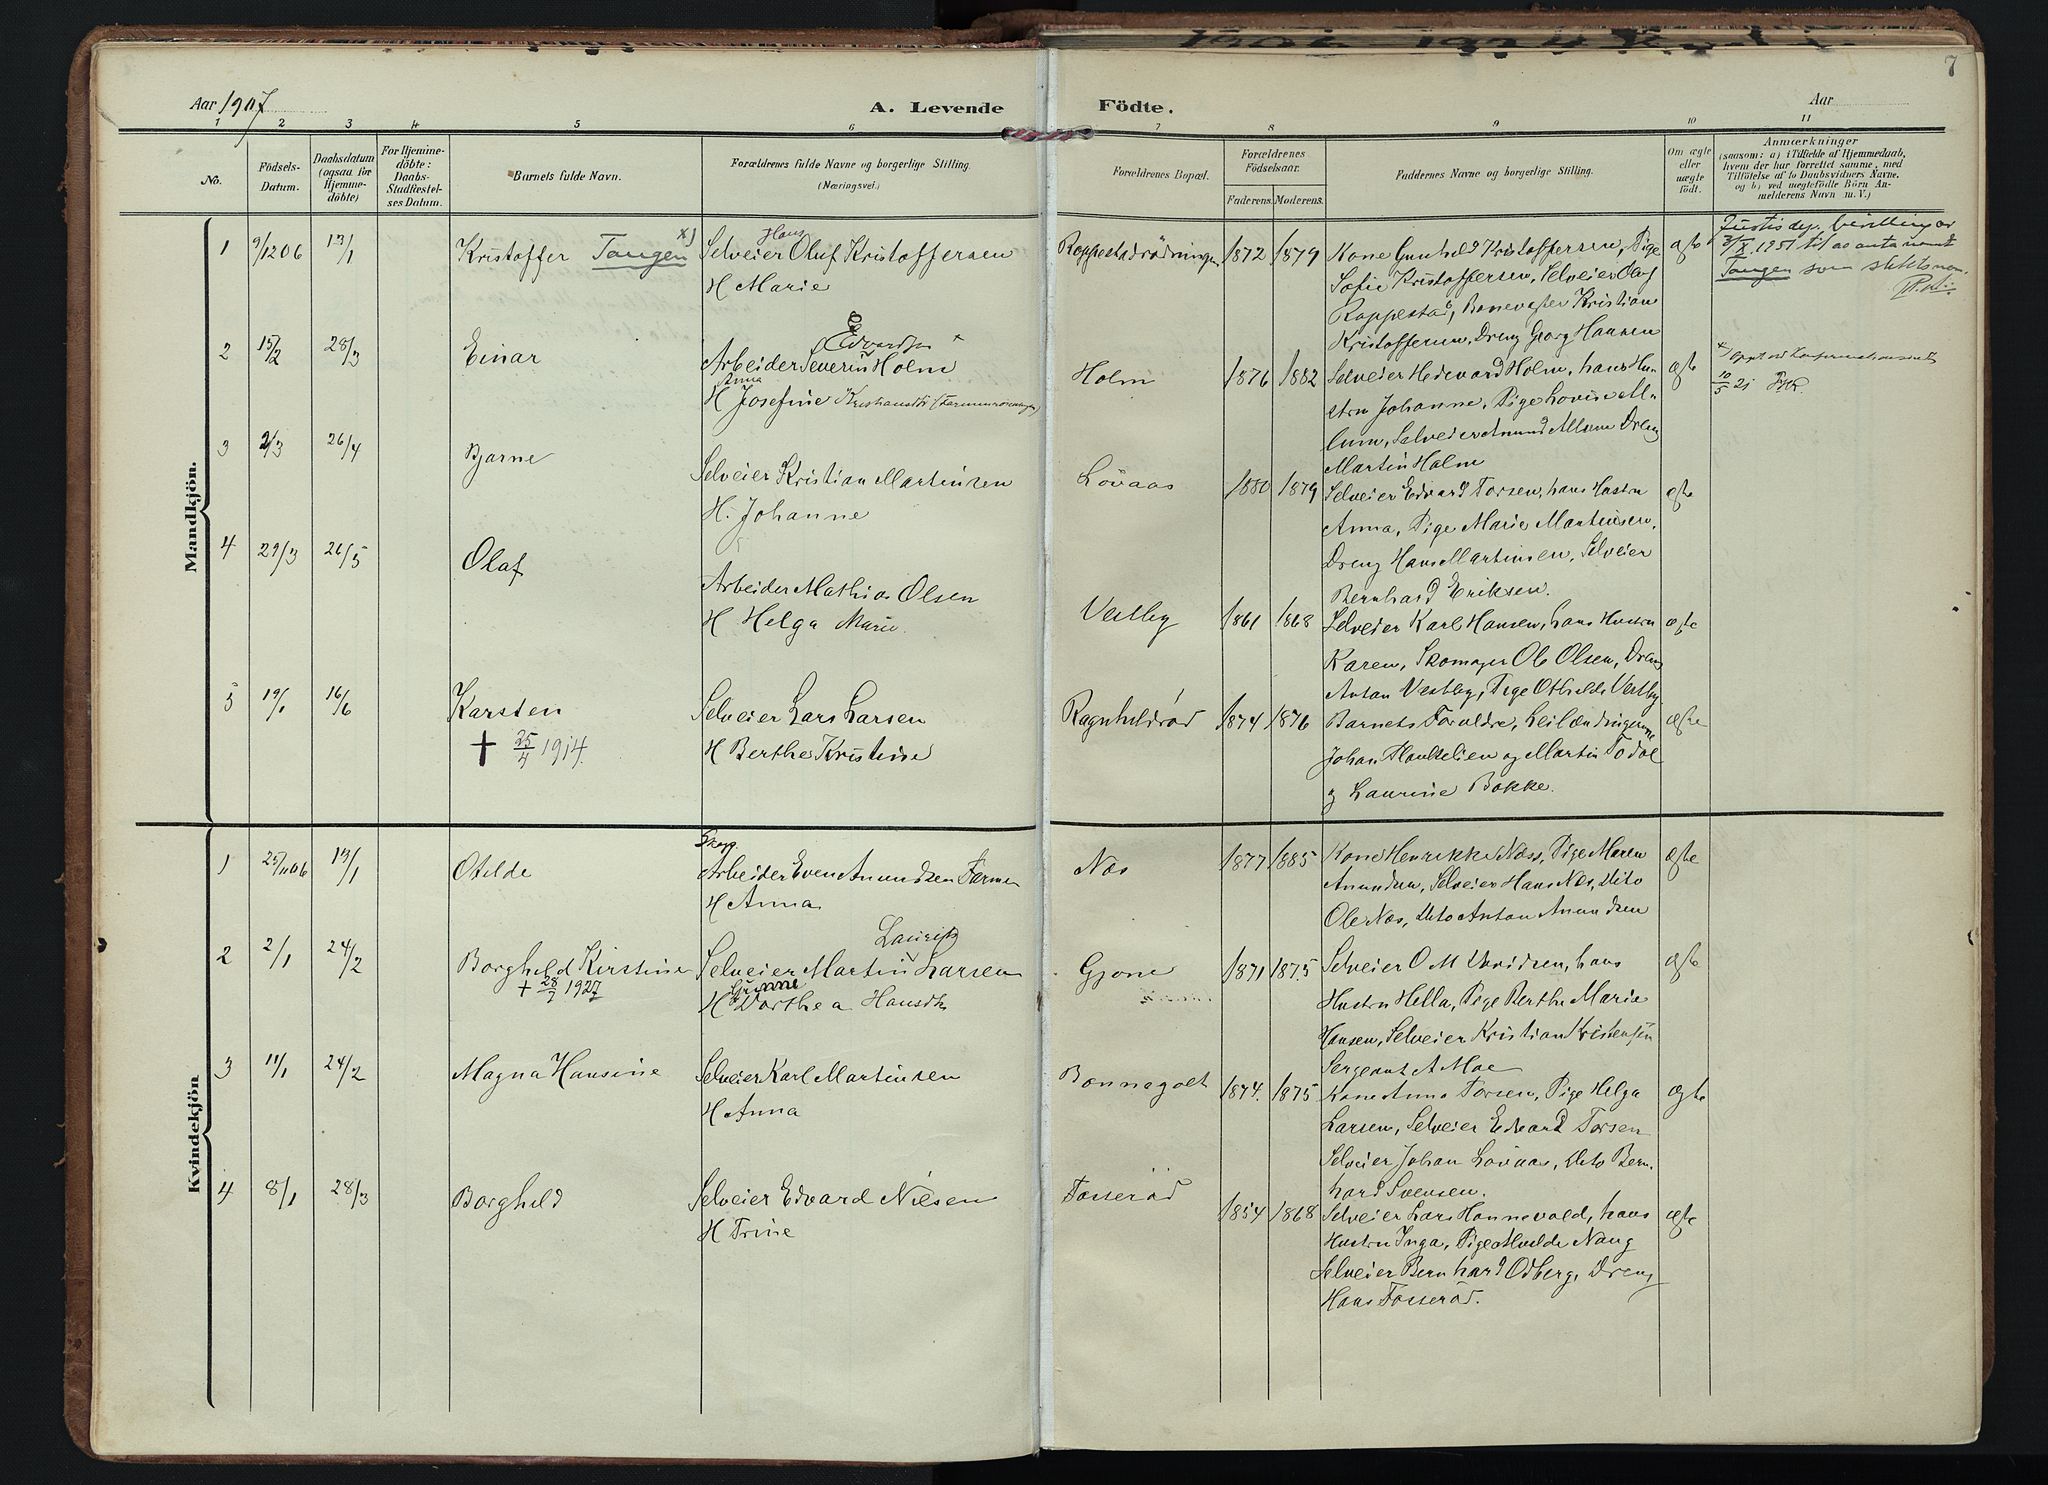 7
Aar 1907
A. Levende
Födte.
Aar
1 2 3 4 5 6 7 8 9 10 11
No.
Födsels-
Datum.
Daabsdatum
(ogsaa for
Hjemme-
döbte)
For Hjemme-
döbte:
Daabs-
Stadfæstel-
ses Datum.
Barnets fulde Navn.
Forældrenes fulde Navne og borgerlige Stilling.
(Næringsvei.)
Forældrenes Bopæl.
Forældrenes
Födselsaar.
Faderens. Moderens.
Faddernes Navne og borgerlige Stilling.
Om ægte
eller
uægte
födt.
Anmærkninger
(saasom: a) i Tilfælde af Hjemmedaab,
hvem der har forrettet samme, med
Tilföielse af to Daabsvidners Navne.
og b) ved uægtefödte Börn An-
melderens Navn m. V.)
Mandkjön.
1 9/12 06 13/1 Kristoffer Tangen x)
Hans
Selveier Oluf Kristoffersen
H Marie
Roppestadrödningen 1872 1879
Kone Gunhild Kristoffersen, Pige
Sofie Kristoffersen, Selveier Olaf
Roppestad, Banevogter Kristian
Kristoffersen, Dreng Georg Hansen
ægte
Justisdep. bevilling av
3/X. 1951 til aa anta navnet
Tangen som slektsnavn.
2 15/2 28/3 Einar
Edvardsen
Arbeider Severin Holm
Anna
H Josefine Kristiansdtr
Holm 1876 1882
Selveier Hedevard Holm, hans Hu-
stru Johanne, Pige Lovise Al-
lum, Selveier Amund Allum Dreng
Martin Holm
ægte
x) Konfirmations
10/5 21
3 2/3 26/4 Bjarne
Selveier Kristian Martinsen
H. Johanne
Lövaas 1880 1879
Selveier Edvard Torsen, hans Hustru
Anna, Pige Marie Martinsen,
Dreng Hans Martinsen, Selveier
Bernhard Eriksen.
ægte
4 29/3 26/5 Olaf
Arbeider Mathias Olsen
H Helga Marie.
Vestby 1861 1868
Selveier Karl Hansen, hans Hustru
Karen, Skomager Ole Olsen, Dreng
Anton Vestby, Pige Othilde Vestby
ægte
5 19/1 16/6 Karsten
† 25/4 1914.
Selveier Lars Larsen
H Berthe Kristine
Ragnhildröd 1874 1876
Barnets Forældre, Leilændingene
Johan og Martin Todal
og Laurine Bakke.
ægte
Kvindekjön
1 25/11 06 13/1 Otilde
Arbeider Even Amundsen Farmen
H Anna
Næs 1877 1885
Kone Henrikke Næss, Pige Maren
Amundsen, Selveier Hans Næs, Dito
Ole Næs, Dito Anton Amundsen
ægte
2 2/1 24/2 Borghild Kirstine
† 28/7 1927
Lauritz
Selveier Martin Larsen
H Dorthea Hansdtr
Gjone 1871 1875
Selveier O M Davidsen, hans
Hustru Hella, Pige Berthe Marie
Hansen, Selveier Kristian Kristensen
Sergeant A Moe
ægte
3 11/1 24/2 Magna Hansine
Selveier Karl Martinsen
H Anna
Bonnegolt 1874. 1875
Kone Anna Torsen, Pige Helga
Larsen, Selveier Edvard Torsen
Selveier Johan Lövaas, Dito Bern-
hard Svensen.
ægte
4 8/1 28/3 Borghild
Selveier Edvard Nilsen
H Trine
Fosseröd 1854 1868
Selveier Lars Hannevold, hans
Hustru Inga, Pige Alvilde Naug
Selveier Bernhard Odberg, Dreng
Hans Fosseröd.
ægte